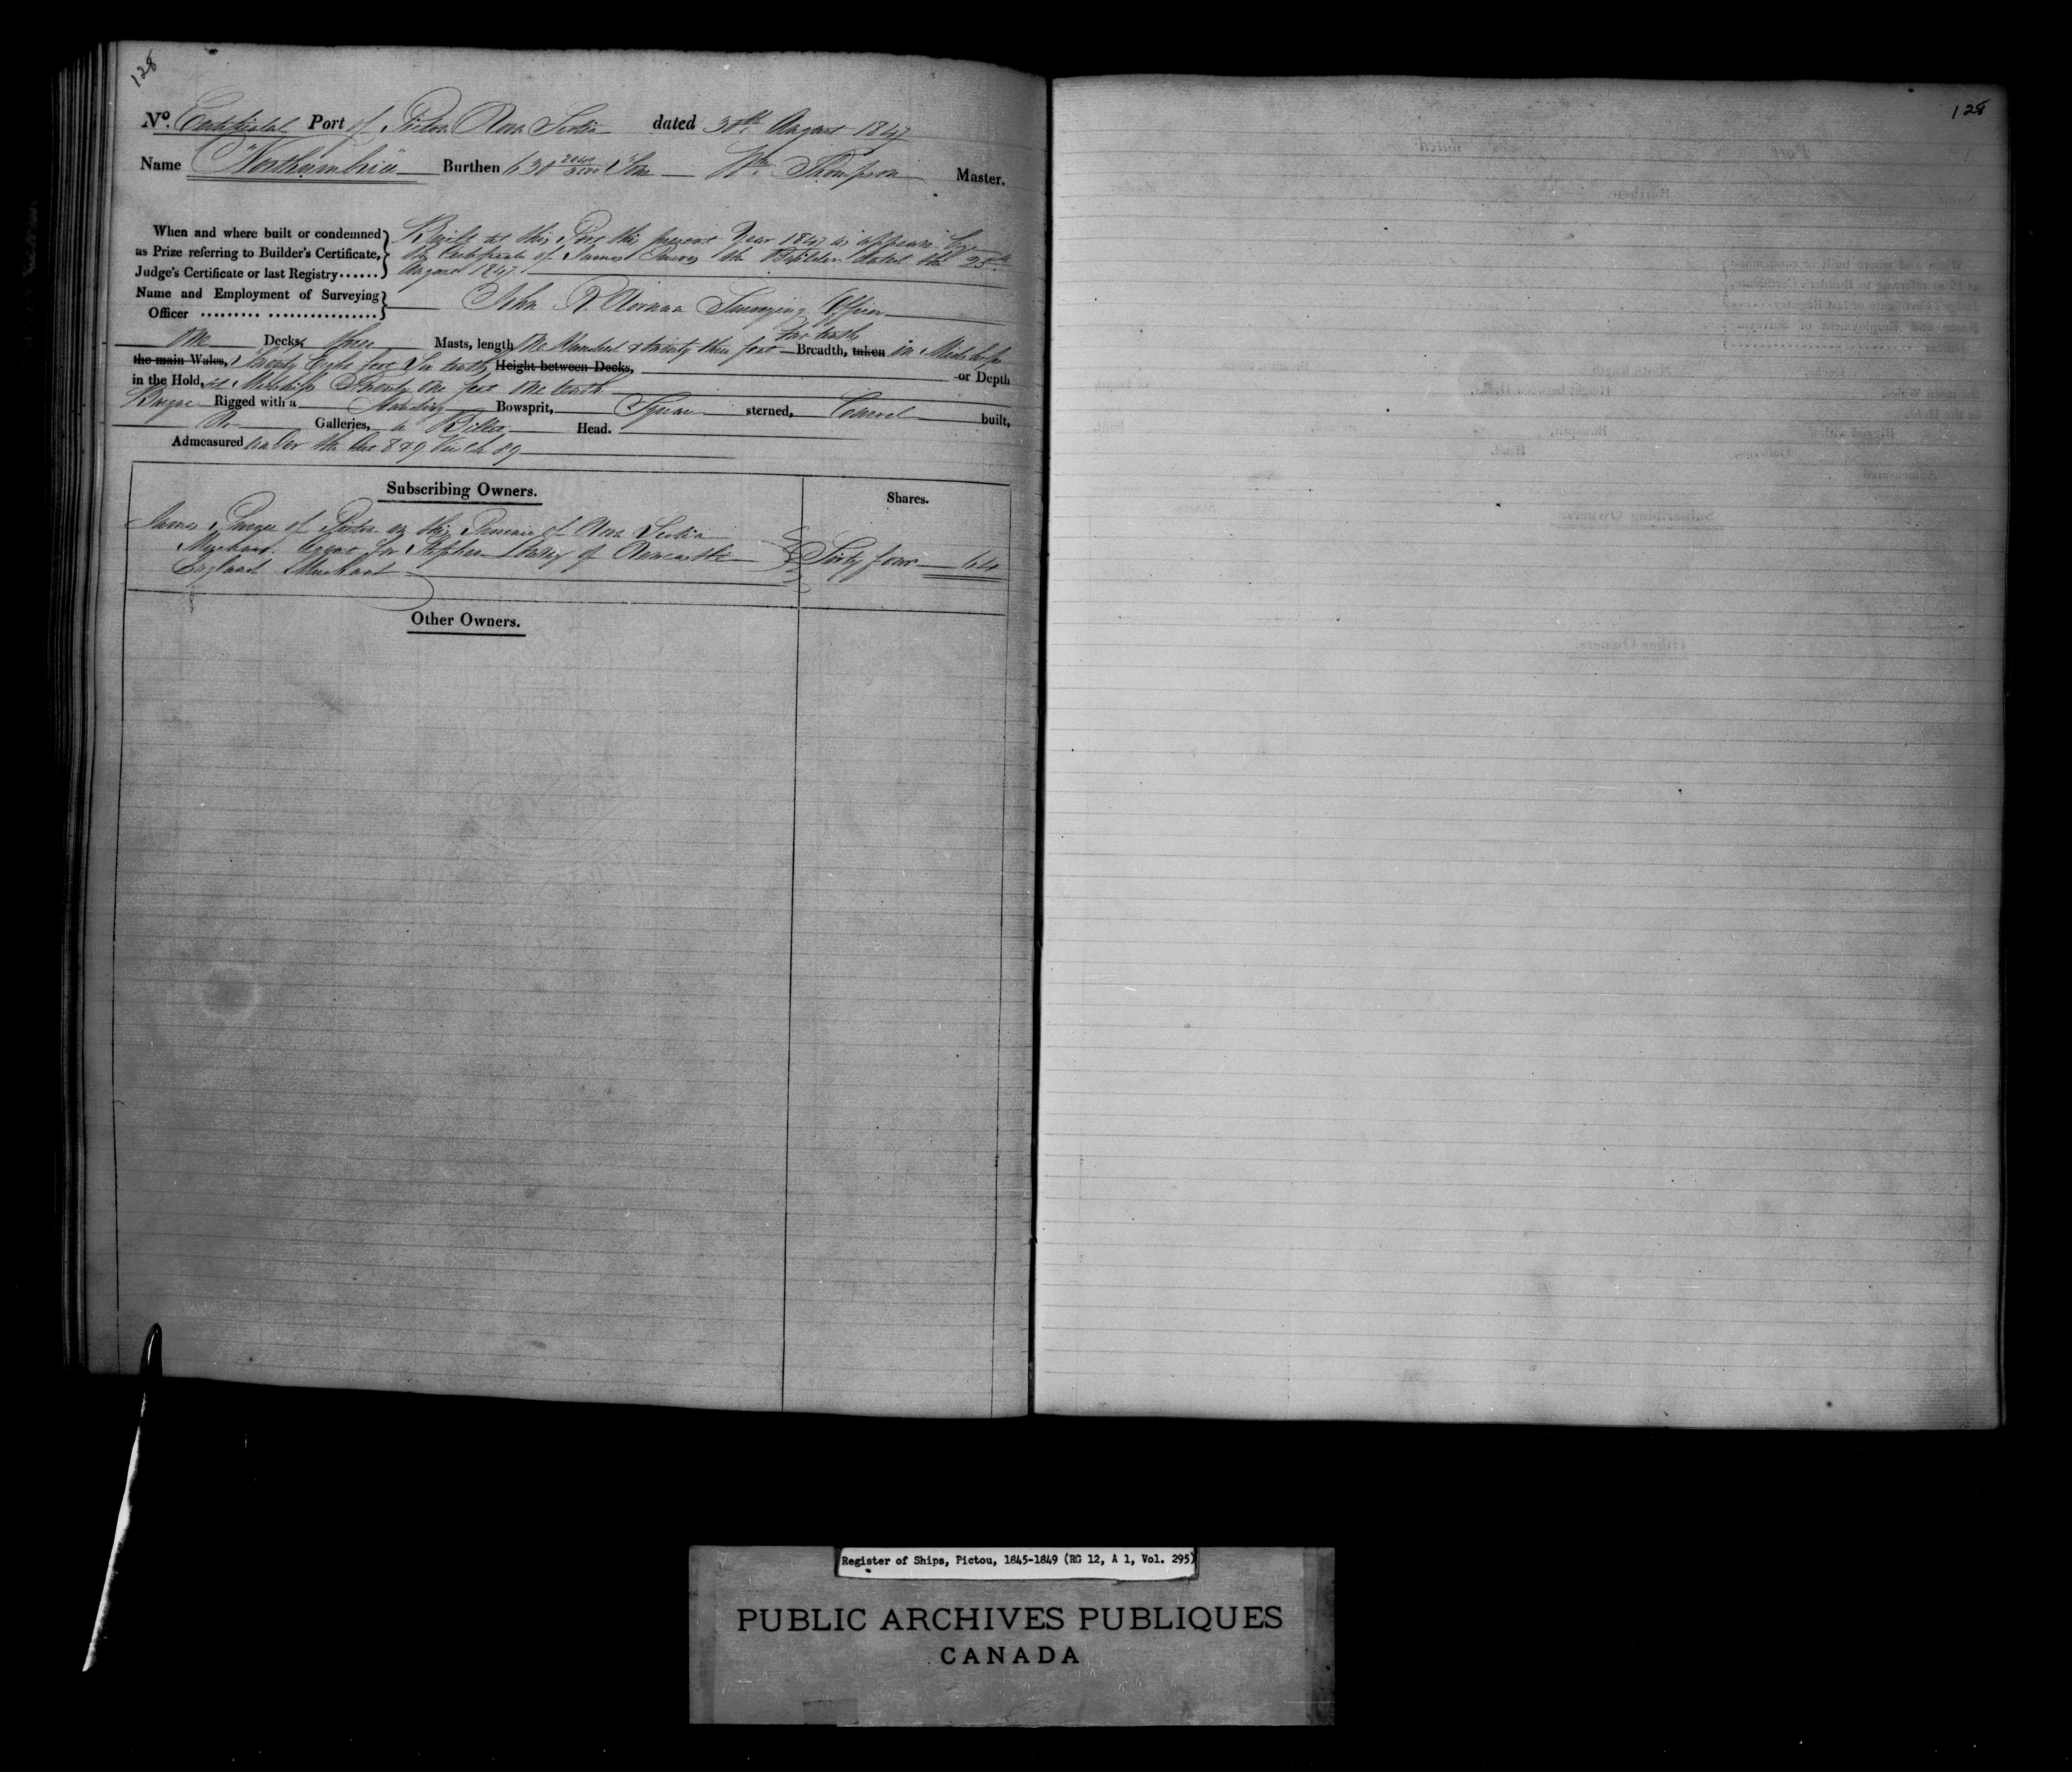 128
128
No. Certificate Port of Pictou Nova Scotia dated 30th August 1847
Name "Northumbria" Burthen 630 Tons Wm. Thompson Master.
When and where built or condemned Built at this Port this present Year 1847 as appears by
as Prize referring to Builder's Certificate, the Certificate of James the Builder dated the 25th
Judge's Certificate or last Registry...... August 1847.
Name and Employment of Surveying
Officer ......... ................. John Surveying Officer
two tenths
One Decks, three Masts, length One Hundred & twenty three feet Breadth, taken in Midships
the main Wales, Twenty Eight feet Six tenths Height between Decks, or Depth
in the Hold, at Midships Twenty One feet One tenth
Barque Rigged with a Standing Bowsprit, Square sterned, Carvel built,
No Galleries, a Billet Head.
Admeasured under the Act 8 & 9 Vic Ch 89
Subscribing Owners. Shares.
James of Pictou in this Province of Nova Scotia
Merchant Agent for Stephen of Newcastle Sixty four 64
England Merchant
Other Owners.
Register of Ships, Pictou, 1845-1849 (RG 12, A 1, Vol. 295)
PUBLIC ARCHIVES PUBLIQUES
CANADA